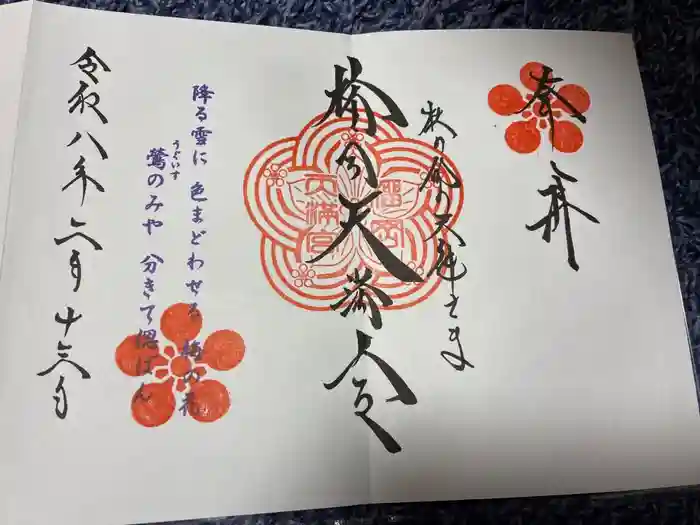 奉拝
天神さま
天満宮
天満宮
降る雪に 色まどわせる 梅の花
うぐいす
鶯のみや 分きて偲ばん
令和八年六月十六日